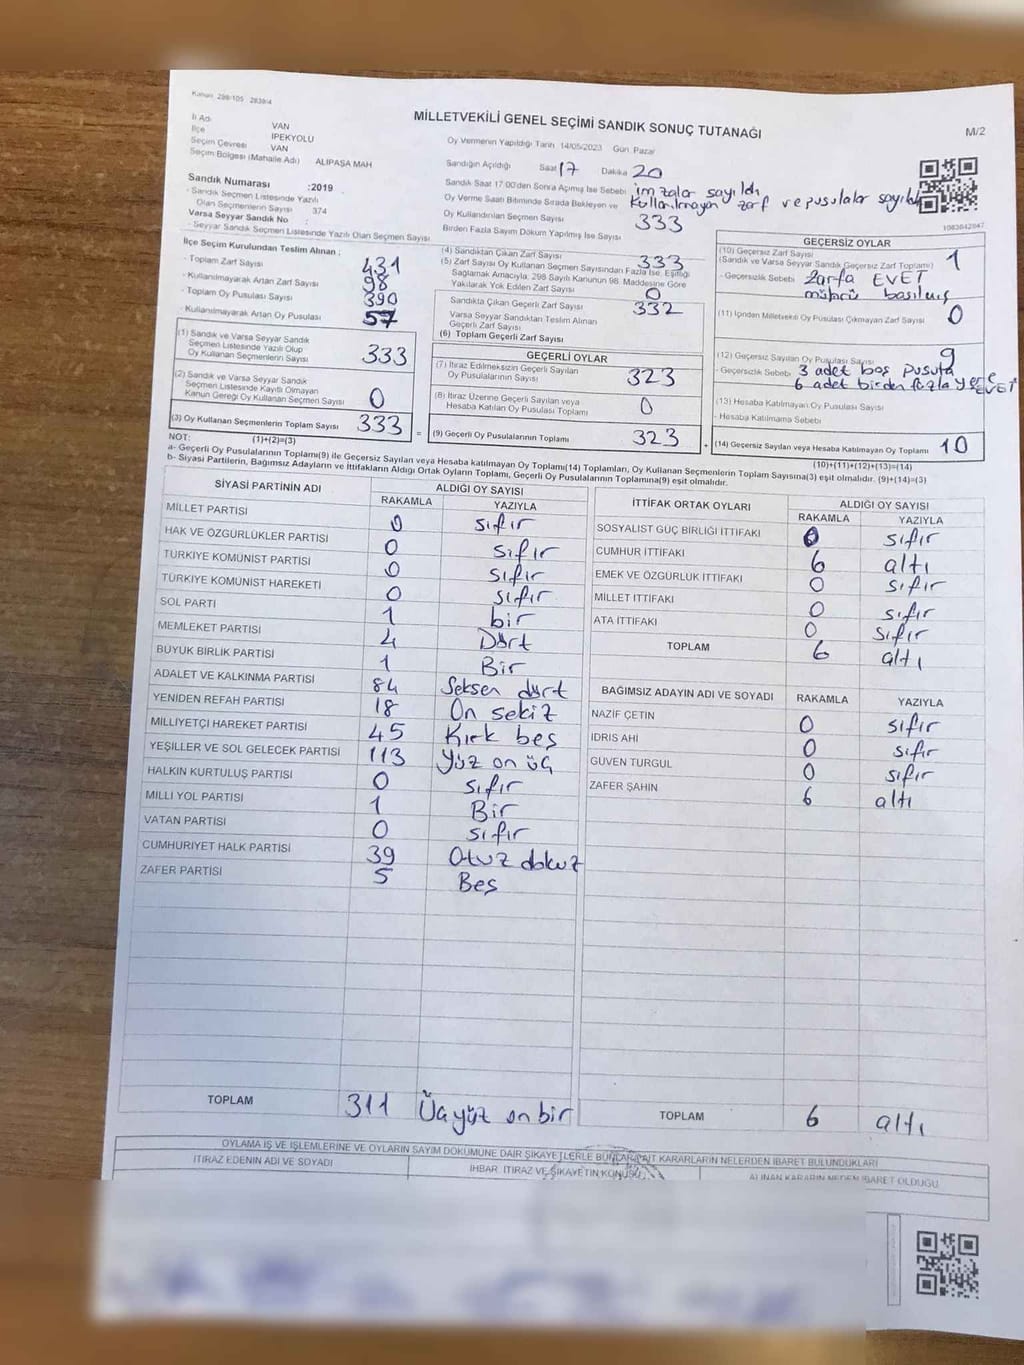 Kanun 298/105 2839/4
MİLLETVEKİLİ GENEL SEÇİMİ SANDIK SONUÇ TUTANAĞI
M/2
İl Adı VAN
İlçe İPEKYOLU
Seçim Çevresi VAN
Seçim Bölgesi (Mahalle Adı) ALIPAŞA MAH
Sandık Numarası :2019
- Sandık Seçmen Listesinde Yazılı
Olan Seçmenlerin Sayısı 374
Varsa Seyyar Sandık No :
- Seyyar Sandık Seçmen Listesinde Yazılı Olan Seçmen Sayısı
Oy Vermenin Yapıldığı Tarih 14/05/2023 Gün Pazar
Sandığın Açıldığı Saat 17 Dakika 20
Sandık Saat 17:00'den Sonra Açılmış İse Sebebi imzalar sayıldı
Oy Verme Saati Bitiminde Sırada Bekleyen ve kullanılmayan zarf ve pusulalar sayıldı
Oy Kullandırılan Seçmen Sayısı 333
Birden Fazla Sayım Döküm Yapılmış İse Sayısı
1083042947
İlçe Seçim Kurulundan Teslim Alınan ;
- Toplam Zarf Sayısı 431
- Kullanılmayarak Artan Zarf Sayısı 98
- Toplam Oy Pusulası Sayısı 390
- Kullanılmayarak Artan Oy Pusulası 57
(1) Sandık ve Varsa Seyyar Sandık
Seçmen Listesinde Yazılı Olup
Oy Kullanan Seçmenlerin Sayısı 333
(2) Sandık ve Varsa Seyyar Sandık
Seçmen Listesinde Kayıtlı Olmayan
Kanun Gereği Oy Kullanan Seçmen Sayısı 0
(3) Oy Kullanan Seçmenlerin Toplam Sayısı 333
(4) Sandıktan Çıkan Zarf Sayısı 333
(5) Zarf Sayısı Oy Kullanan Seçmen Sayısından Fazla İse, Eşitliği
Sağlamak Amacıyla, 298 Sayılı Kanunun 98. Maddesine Göre
Yakılarak Yok Edilen Zarf Sayısı 0
Sandıkta Çıkan Geçerli Zarf Sayısı 332
Varsa Seyyar Sandıktan Teslim Alınan
Geçerli Zarf Sayısı
(6) Toplam Geçerli Zarf Sayısı
GEÇERLİ OYLAR
(7) İtiraz Edilmeksizin Geçerli Sayılan
Oy Pusulalarının Sayısı 323
(8) İtiraz Üzerine Geçerli Sayılan veya
Hesaba Katılan Oy Pusulası Toplamı 0
= (9) Geçerli Oy Pusulalarının Toplamı 323
GEÇERSİZ OYLAR
(10) Geçersiz Zarf Sayısı
(Sandık ve Varsa Seyyar Sandık Geçersiz Zarf Toplamı) 1
- Geçersizlik Sebebi zarfa EVET
mührü basılmış
(11) İçinden Milletvekili Oy Pusulası Çıkmayan Zarf Sayısı 0
(12) Geçersiz Sayılan Oy Pusulası Sayısı 9
- Geçersizlik Sebebi 3 adet boş pusula
6 adet birden fazla yere EVET
(13) Hesaba Katılmayan Oy Pusulası Sayısı
- Hesaba Katılmama Sebebi
+ (14) Geçersiz Sayılan veya Hesaba Katılmayan Oy Toplamı 10
NOT: (1)+(2)=(3)
(10)+(11)+(12)+(13)=(14)
a- Geçerli Oy Pusulalarının Toplamı(9) ile Geçersiz Sayılan veya Hesaba katılmayan Oy Toplamı(14) Toplamları, Oy Kullanan Seçmenlerin Toplam Sayısına(3) eşit olmalıdır. (9)+(14)=(3)
b- Siyasi Partilerin, Bağımsız Adayların ve İttifakların Aldığı Ortak Oyların Toplamı, Geçerli Oy Pusulalarının Toplamına(9) eşit olmalıdır.
SİYASİ PARTİNİN ADI ALDIĞI OY SAYISI
RAKAMLA YAZIYLA
MİLLET PARTİSİ 0 sıfır
HAK VE ÖZGÜRLÜKLER PARTİSİ 0 sıfır
TÜRKİYE KOMÜNİST PARTİSİ 0 sıfır
TÜRKİYE KOMÜNİST HAREKETİ 0 sıfır
SOL PARTİ 1 bir
MEMLEKET PARTİSİ 4 Dört
BÜYÜK BİRLİK PARTİSİ 1 Bir
ADALET VE KALKINMA PARTİSİ 84 Seksen dört
YENİDEN REFAH PARTİSİ 18 On sekiz
MİLLİYETÇİ HAREKET PARTİSİ 45 Kırk beş
YEŞİLLER VE SOL GELECEK PARTİSİ 113 Yüz on üç
HALKIN KURTULUŞ PARTİSİ 0 sıfır
MİLLİ YOL PARTİSİ 1 Bir
VATAN PARTİSİ 0 sıfır
CUMHURİYET HALK PARTİSİ 39 Otuz dokuz
ZAFER PARTİSİ 5 Beş
TOPLAM 311 Üçyüz on bir
İTTİFAK ORTAK OYLARI ALDIĞI OY SAYISI
RAKAMLA YAZIYLA
SOSYALİST GÜÇ BİRLİĞİ İTTİFAKI 0 sıfır
CUMHUR İTTİFAKI 6 altı
EMEK VE ÖZGÜRLÜK İTTİFAKI 0 sıfır
MİLLET İTTİFAKI 0 sıfır
ATA İTTİFAKI 0 sıfır
TOPLAM 6 altı
BAĞIMSIZ ADAYIN ADI VE SOYADI RAKAMLA YAZIYLA
NAZİF ÇETİN 0 sıfır
İDRİS AHİ 0 sıfır
GÜVEN TURGUL 0 sıfır
ZAFER ŞAHİN 6 altı
TOPLAM 6 altı
OYLAMA İŞ VE İŞLEMLERİNE VE OYLARIN SAYIM DÖKÜMÜNE DAİR ŞİKAYETLERLE BUNLARA AİT KARARLARIN NELERDEN İBARET BULUNDUKLARI
İTİRAZ EDENİN ADI VE SOYADI İHBAR, İTİRAZ VE ŞİKAYETİN KONUSU ALINAN KARARIN NEDEN İBARET OLDUĞU